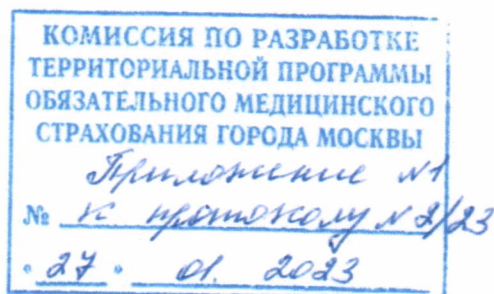 КОМИССИЯ ПО РАЗРАБОТКЕ
ТЕРРИТОРИАЛЬНОЙ ПРОГРАММЫ
ОБЯЗАТЕЛЬНОГО МЕДИЦИНСКОГО
СТРАХОВАНИЯ ГОРОДА МОСКВЫ
Приложение №1
№ к протоколу № 2/23
"27" 01. 2023